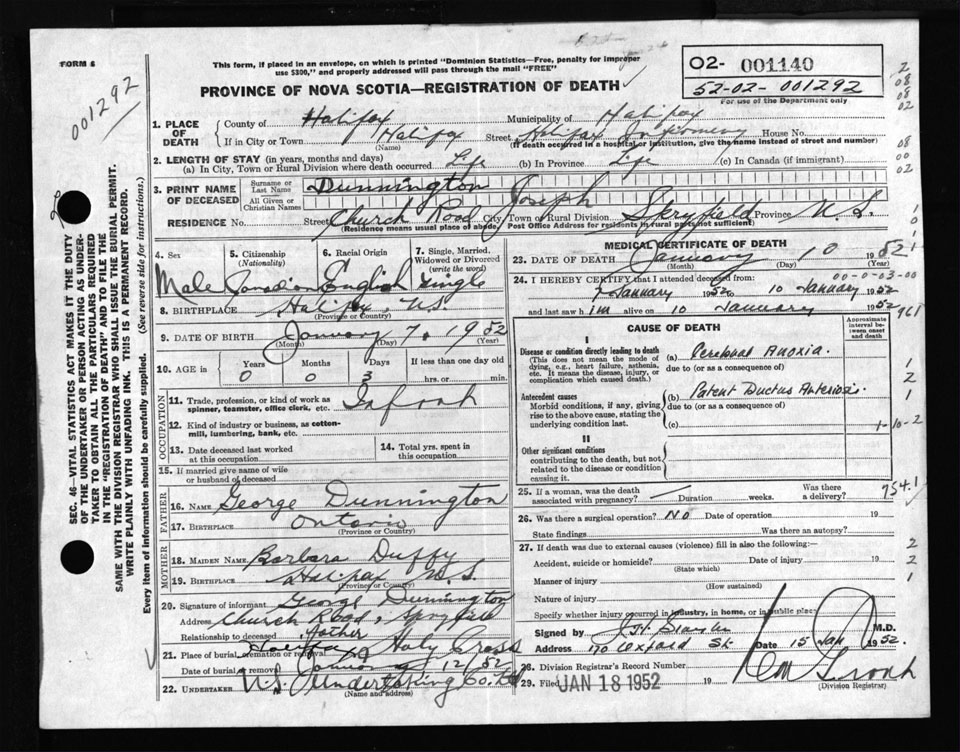 FORM 6
This form, if placed in an envelope, on which is printed "Dominion Statistics—Free, penalty for improper
use $300," and properly addressed will pass through the mail "FREE"
PROVINCE OF NOVA SCOTIA—REGISTRATION OF DEATH
02- 001140
52-02-001292
For use of the Department only
001292
1. PLACE OF DEATH
County of Halifax Municipality of Halifax
If in City or Town Halifax Street Halifax Infirmary House No.
(Name) (If death occurred in a hospital or institution, give the name instead of street and number)
2. LENGTH OF STAY (in years, months and days)
(a) In City, Town or Rural Division where death occurred Life (b) In Province Life (c) In Canada (if immigrant)
3. PRINT NAME OF DECEASED
Surname or Last Name Dunnington
All Given or Christian Names Joseph
RESIDENCE No. Street Church Road City Town or Rural Division Spryfield Province N.S.
(Residence means usual place of abode. Post Office Address for residents in rural parts not sufficient)
4. Sex
Male
5. Citizenship (Nationality)
Canadian
6. Racial Origin
English
7. Single, Married, Widowed or Divorced (write the word)
Single
8. BIRTHPLACE Halifax, N.S.
(Province or Country)
9. DATE OF BIRTH January 7, 1952
(Month) (Day) (Year)
10. AGE in Years Months Days If less than one day old
0 0 3 hrs. or min.
OCCUPATION
11. Trade, profession, or kind of work as spinner, teamster, office clerk, etc. Infant
12. Kind of industry or business, as cotton-mill, lumbering, bank, etc.
13. Date deceased last worked at this occupation
14. Total yrs. spent in this occupation
15. If married give name of wife or husband of deceased
FATHER
16. NAME George Dunnington
17. BIRTHPLACE Ontario
(Province or Country)
MOTHER
18. MAIDEN NAME Barbara Duffy
19. BIRTHPLACE Halifax N.S.
(Province or Country)
20. Signature of informant George Dunnington
Address Church Road, Spryfield
Relationship to deceased Father
21. Place of burial, cremation or removal Halifax Holy Cross
Date of burial or removal January 12/52
22. UNDERTAKER N.S. Undertaking Co. Ltd
(Name and address)
MEDICAL CERTIFICATE OF DEATH
23. DATE OF DEATH January 10 1952
(Month) (Day) (Year)
00-0-03-00
24. I HEREBY CERTIFY that I attended deceased from:
7 January 1952 to 10 January 1952
and last saw him alive on 10 January 1952
CAUSE OF DEATH
Approximate interval between onset and death
I
Disease or condition directly leading to death
(This does not mean the mode of dying, e.g., heart failure, asthenia, etc. It means the disease, injury, or complication which caused death.)
(a) Cerebral Anoxia.
due to (or as a consequence of)
Antecedent causes
Morbid conditions, if any, giving rise to the above cause, stating the underlying condition last.
(b) Patent Ductus Arteriosi.
due to (or as a consequence of)
(c)
1-10-2
II
Other significant conditions
contributing to the death, but not related to the disease or condition causing it.
25. If a woman, was the death associated with pregnancy? Duration weeks. Was there a delivery?
754.1
26. Was there a surgical operation? No Date of operation 19
State findings Was there an autopsy?
27. If death was due to external causes (violence) fill in also the following:
Accident, suicide or homicide? Date of injury 19
(State which)
Manner of injury
(How sustained)
Nature of injury
Specify whether injury occurred in industry, in home, or in public place
Signed by M.D.
Address 170 Oxford St. Date 15 Jan 1952.
28. Division Registrar's Record Number
29. Filed JAN 18 1952 19
(Division Registrar)
SEC. 46—VITAL STATISTICS ACT MAKES IT THE DUTY
OF THE UNDERTAKER OR PERSON ACTING AS UNDER-
TAKER TO OBTAIN ALL THE PARTICULARS REQUIRED
IN THE "REGISTRATION OF DEATH" AND TO FILE THE
SAME WITH THE DIVISION REGISTRAR WHO SHALL ISSUE THE BURIAL PERMIT.
WRITE PLAINLY WITH UNFADING INK. THIS IS A PERMANENT RECORD.
Every item of information should be carefully supplied. (See reverse side for instructions.)